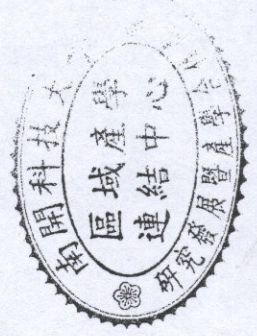 南開科技大
研究發展暨產學合
區域產學
連結中心